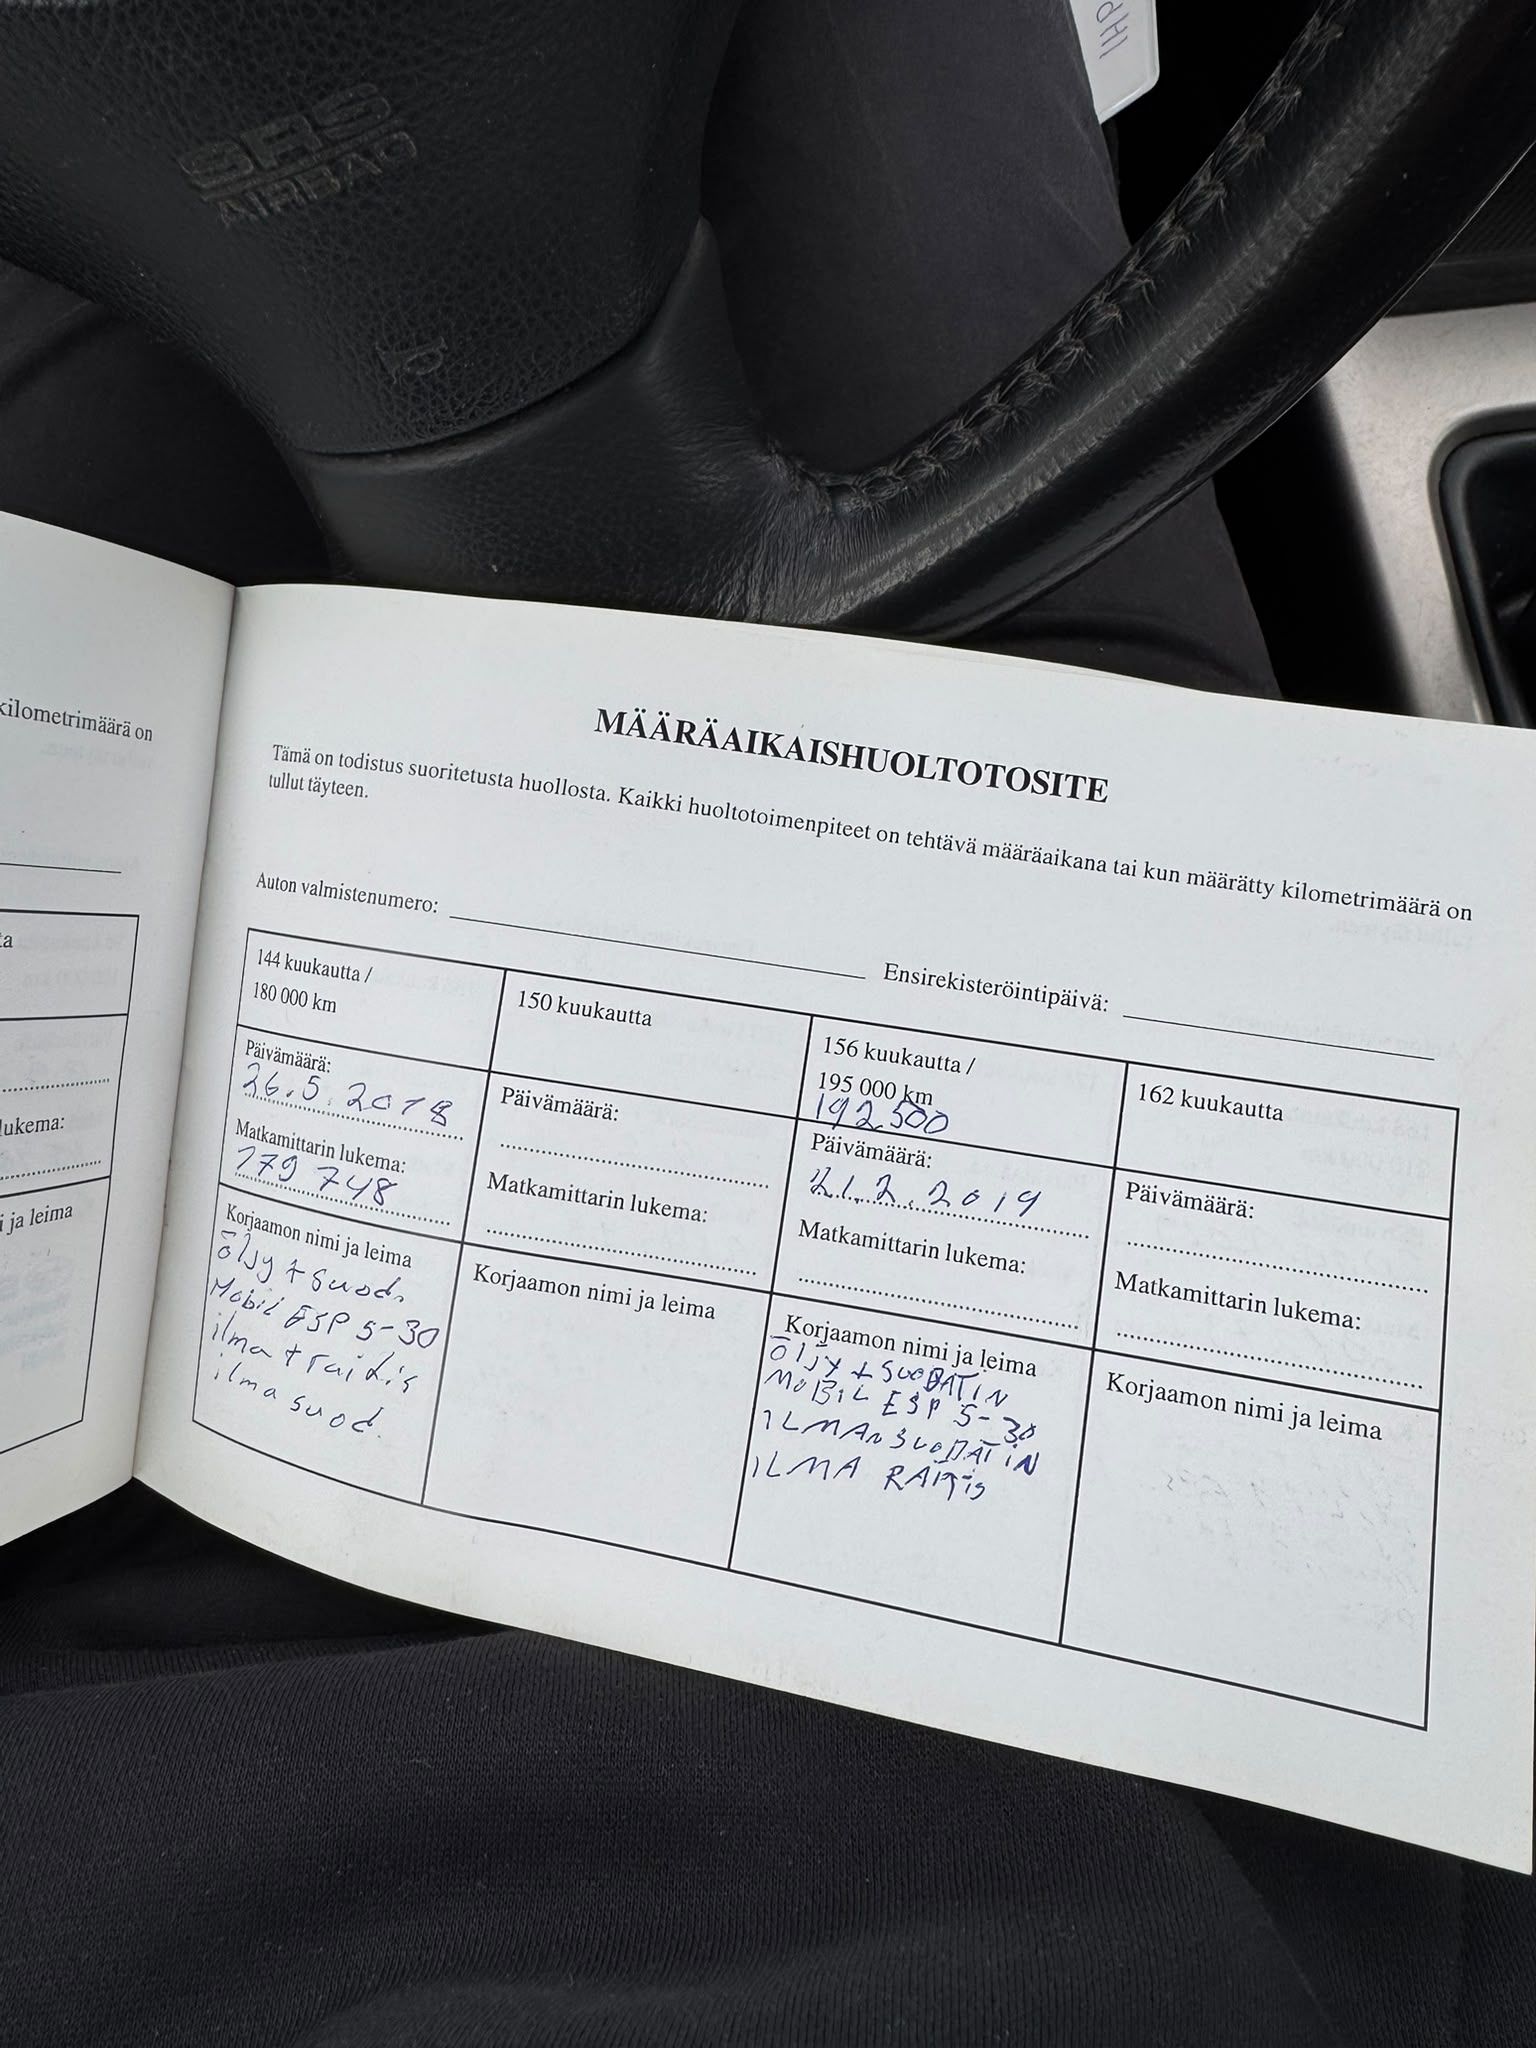 IHP
SRS
AIRBAG
kilometrimäärä on
ta
lukema:
i ja leima
MÄÄRÄAIKAISHUOLTOTOSITE
Tämä on todistus suoritetusta huollosta. Kaikki huoltotoimenpiteet on tehtävä määräaikana tai kun määrätty kilometrimäärä on
tullut täyteen.
Auton valmistenumero:
Ensirekisteröintipäivä:
144 kuukautta /
180 000 km
Päivämäärä:
26.5.2018
Matkamittarin lukema:
179 748
Korjaamon nimi ja leima
öljy + suod.
Mobil ESP 5-30
ilma + raitis
ilma suod.
150 kuukautta
Päivämäärä:
Matkamittarin lukema:
Korjaamon nimi ja leima
156 kuukautta /
195 000 km
192500
Päivämäärä:
21.2.2019
Matkamittarin lukema:
Korjaamon nimi ja leima
ÖLJY + SUODATIN
MOBIL ESP 5-30
ILMANSUODATIN
ILMA RAITIS
162 kuukautta
Päivämäärä:
Matkamittarin lukema:
Korjaamon nimi ja leima